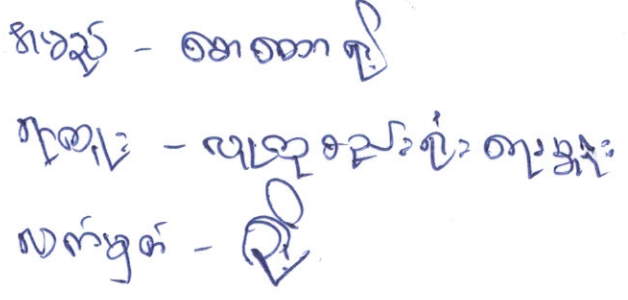 အမည် - မောမောကြီး
ရာထူး - လူထုစည်းရုံးရေးမှူး
လက်မှတ် -